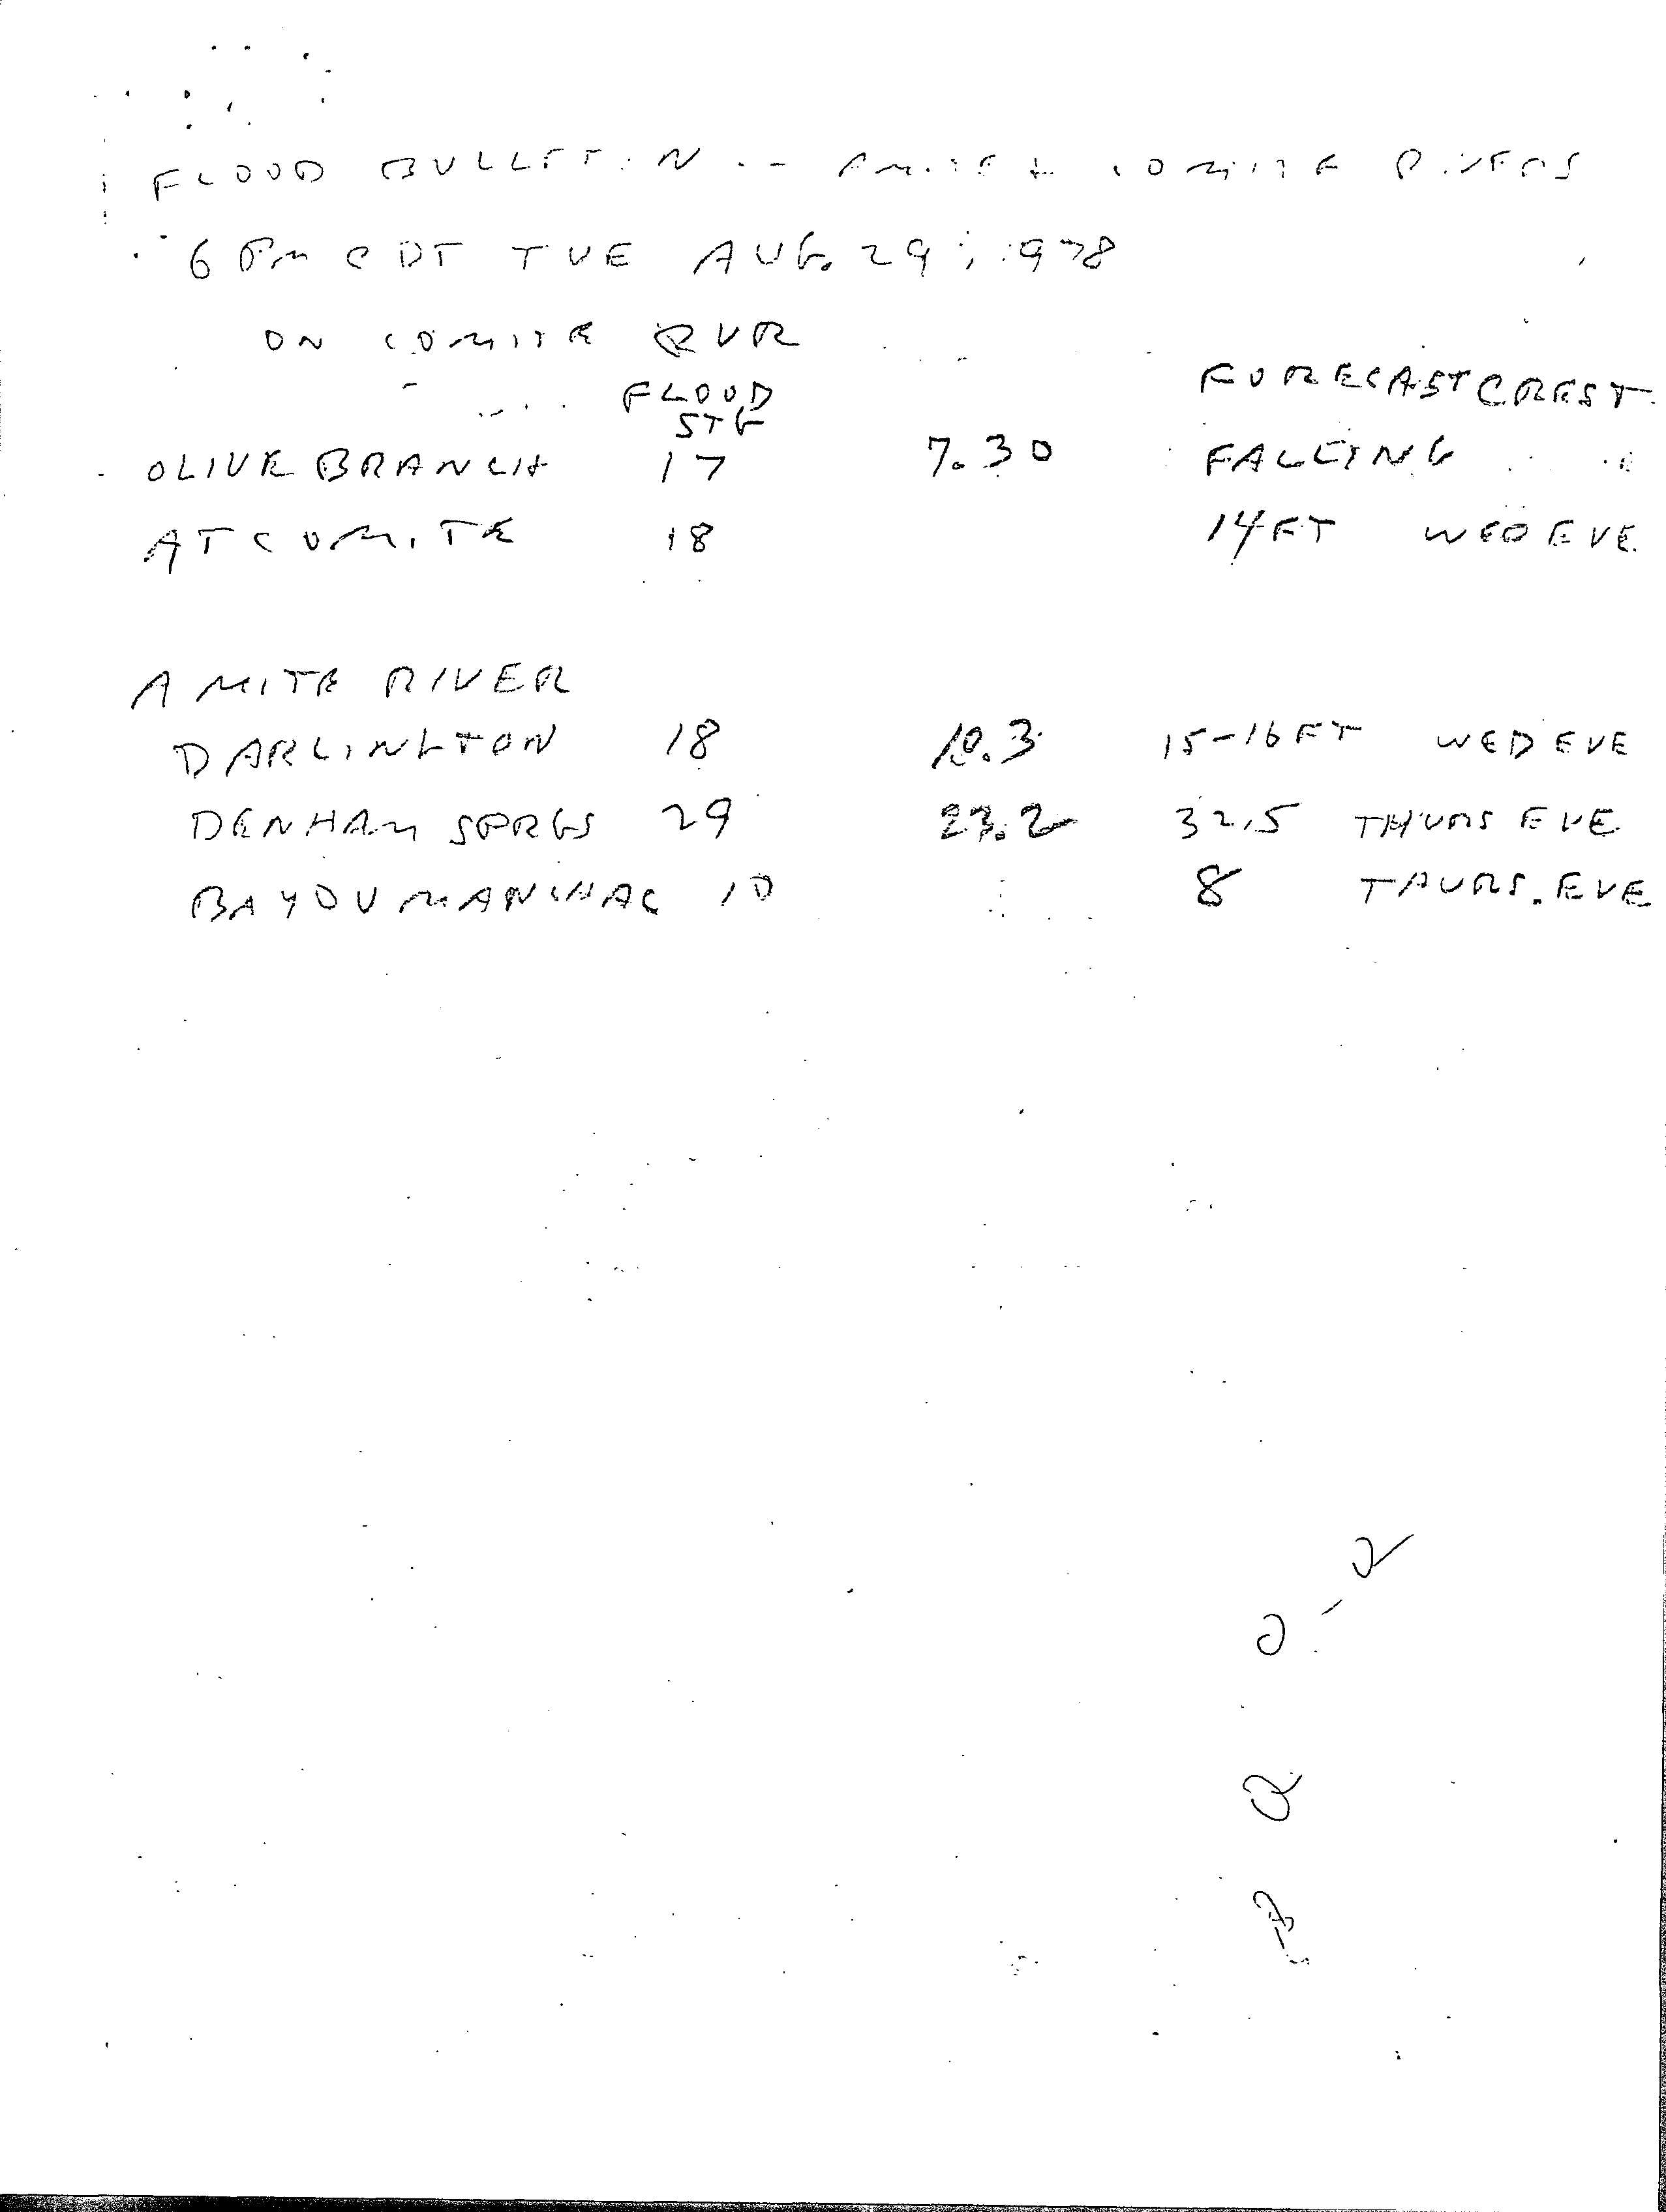 FLOOD BULLETIN -- AMITE & COMITE RIVERS
6 PM CDT TUE AUG. 29, 1978
ON COMITE RVR
FLOOD STG FORECAST CREST
OLIVE BRANCH 17 7.30 FALLING
AT COMITE 18 14 FT WED EVE
AMITE RIVER
DARLINGTON 18 10.3 15-16 FT WED EVE
DENHAM SPRGS 29 23.2 32.5 THURS EVE
BAYOU MANCHAC 10 8 THURS. EVE